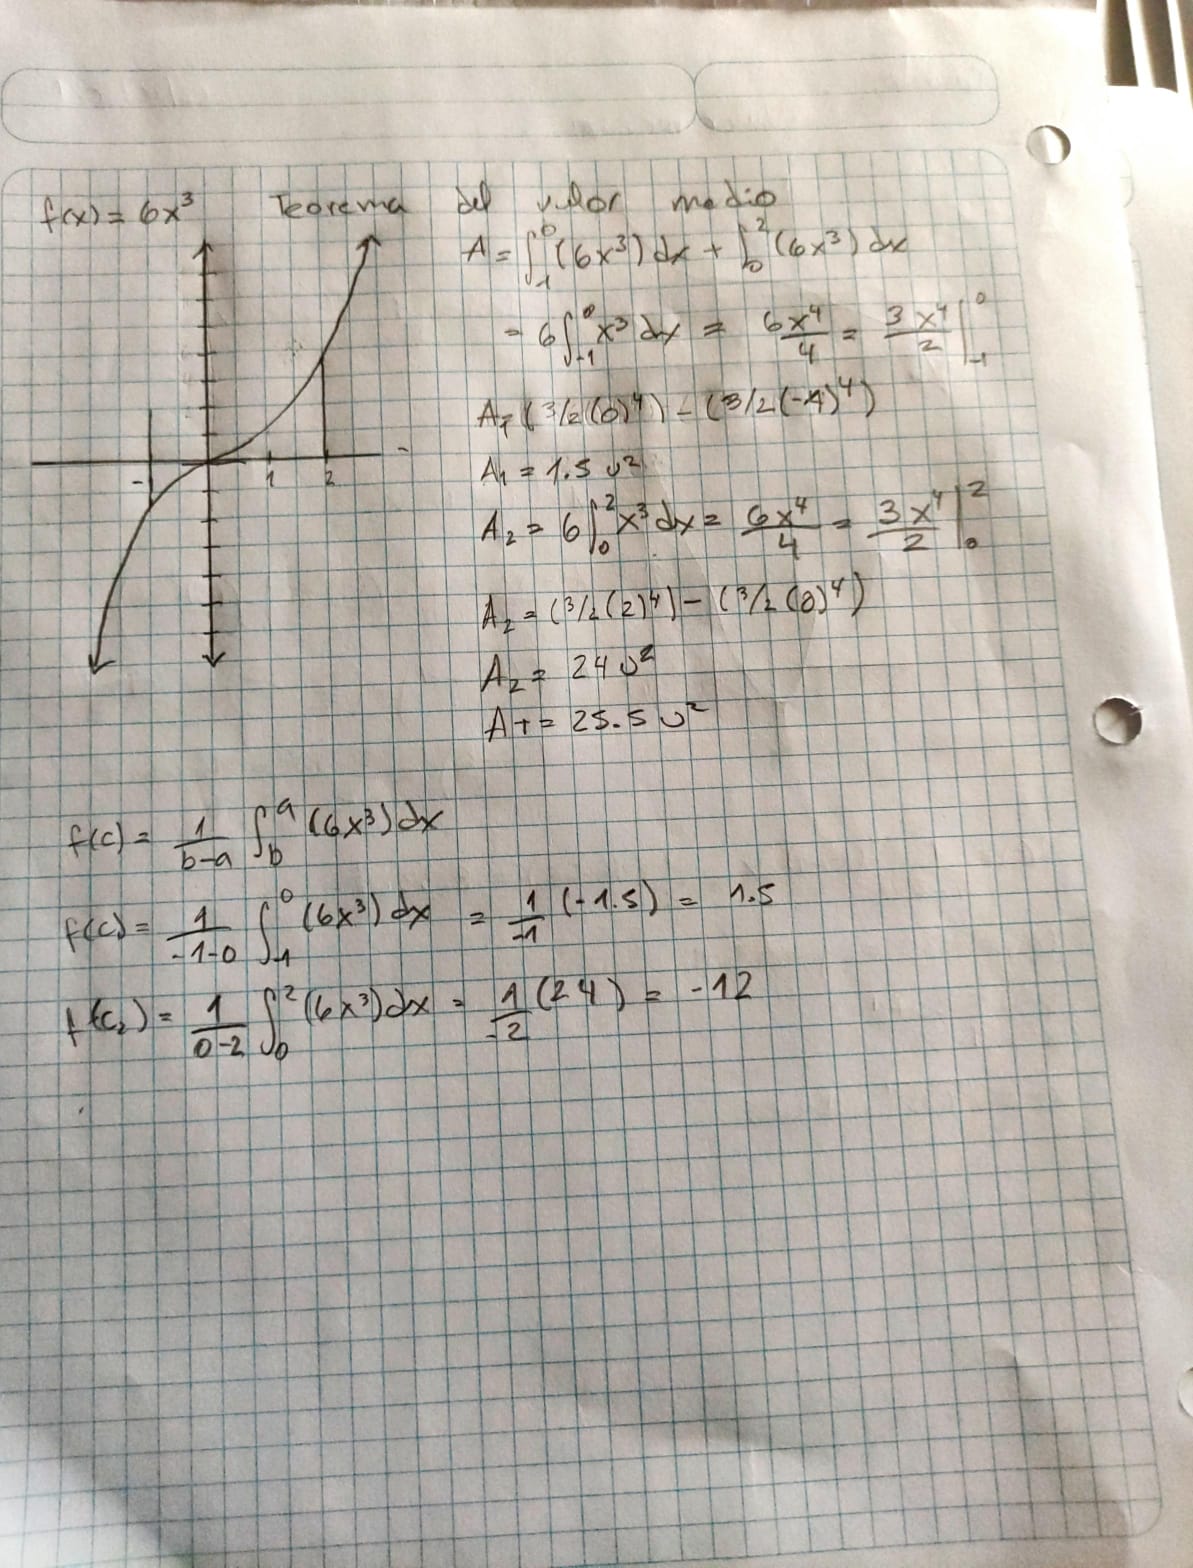 f(x) = 6x³ Teorema del valor medio
A = ∫₋₁⁰ (6x³) dx + ∫₀² (6x³) dx
= 6∫₋₁⁰ x³ dx = 6x⁴/4 = 3x⁴/2 |₋₁⁰
A₁ = (3/2(0)⁴) - (3/2(-1)⁴)
A₁ = 1.5 u²
- 1 2
A₂ = 6∫₀² x³ dx = 6x⁴/4 = 3x⁴/2 |₀²
A₂ = (3/2(2)⁴) - (3/2(0)⁴)
A₂ = 24 u²
AT = 25.5 u²
f(c) = 1/b-a ∫_b^a (6x³) dx
f(c) = 1/-1-0 ∫₋₁⁰ (6x³) dx = 1/-1 (-1.5) = 1.5
f(c₂) = 1/0-2 ∫₀² (6x³) dx = 1/-2 (24) = -12